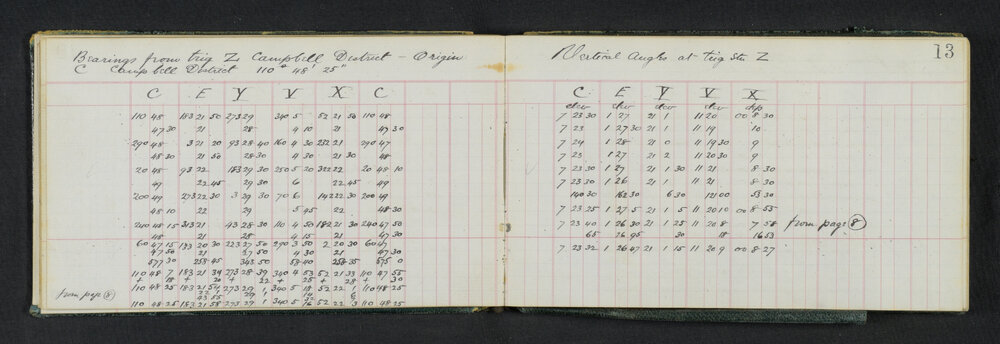 Bearings from trig Z, Campbell District – Origin
C Campbell District 110° 48' 25"
C E Y V X C
110 48 183 21 50 273 29 340 5 52 21 50 110 48
47 30 21 28 4 10 21 47 30
290 48 3 21 20 93 28 40 160 4 30 232 21 290 47
48 30 21 50 28 30 4 30 21 30 48
20 48 93 22 183 29 30 250 5 20 322 22 20 48 10
49 22 45 29 30 6 22 45 49
200 49 273 22 30 3 29 30 70 6 142 22 30 200 49
48 10 22 29 5 45 22 48 30
240 48 15 313 21 43 28 30 110 4 50 182 21 30 240 47 50
48 21 28 4 15 21 47 30
60 47 15 133 20 30 223 27 50 290 3 50 2 20 30 60 47
47 50 21 27 50 4 30 21 47 30
577 30 258 45 343 50 53 40 258 35 575 0
110 48 7 183 21 34 273 28 39 340 4 53 52 21 33 110 47 55
+ 18 + 20 + 22 + 25 + 28 + 30
from page (8) 110 48 25 183 21 54 273 29 1 340 5 18 52 22 1 110 48 25
110 48 25 183 21 58 273 29 1 340 5 16 52 22 3 110 48 25
13
Vertical Angles at Trig Stn Z
C E Y V X
elev elev elev elev dep
7 23 30 1 27 21 1 11 20 00 8 30
7 23 1 27 30 21 1 11 19 10
7 24 1 28 21 0 11 19 30 9
7 23 1 27 21 2 11 20 30 9
7 23 30 1 29 21 1 30 11 21 8 30
7 23 30 1 26 21 1 11 21 8 30
140 30 162 30 6 30 121 00 53 30
7 23 25 1 27 5 21 1 5 11 20 10 00 8 55
7 23 40 1 26 30 21 1 25 11 20 8 7 58 from page (8)
65 26 95 30 18 16 53
7 23 32 1 26 47 21 1 15 11 20 9 00 8 27